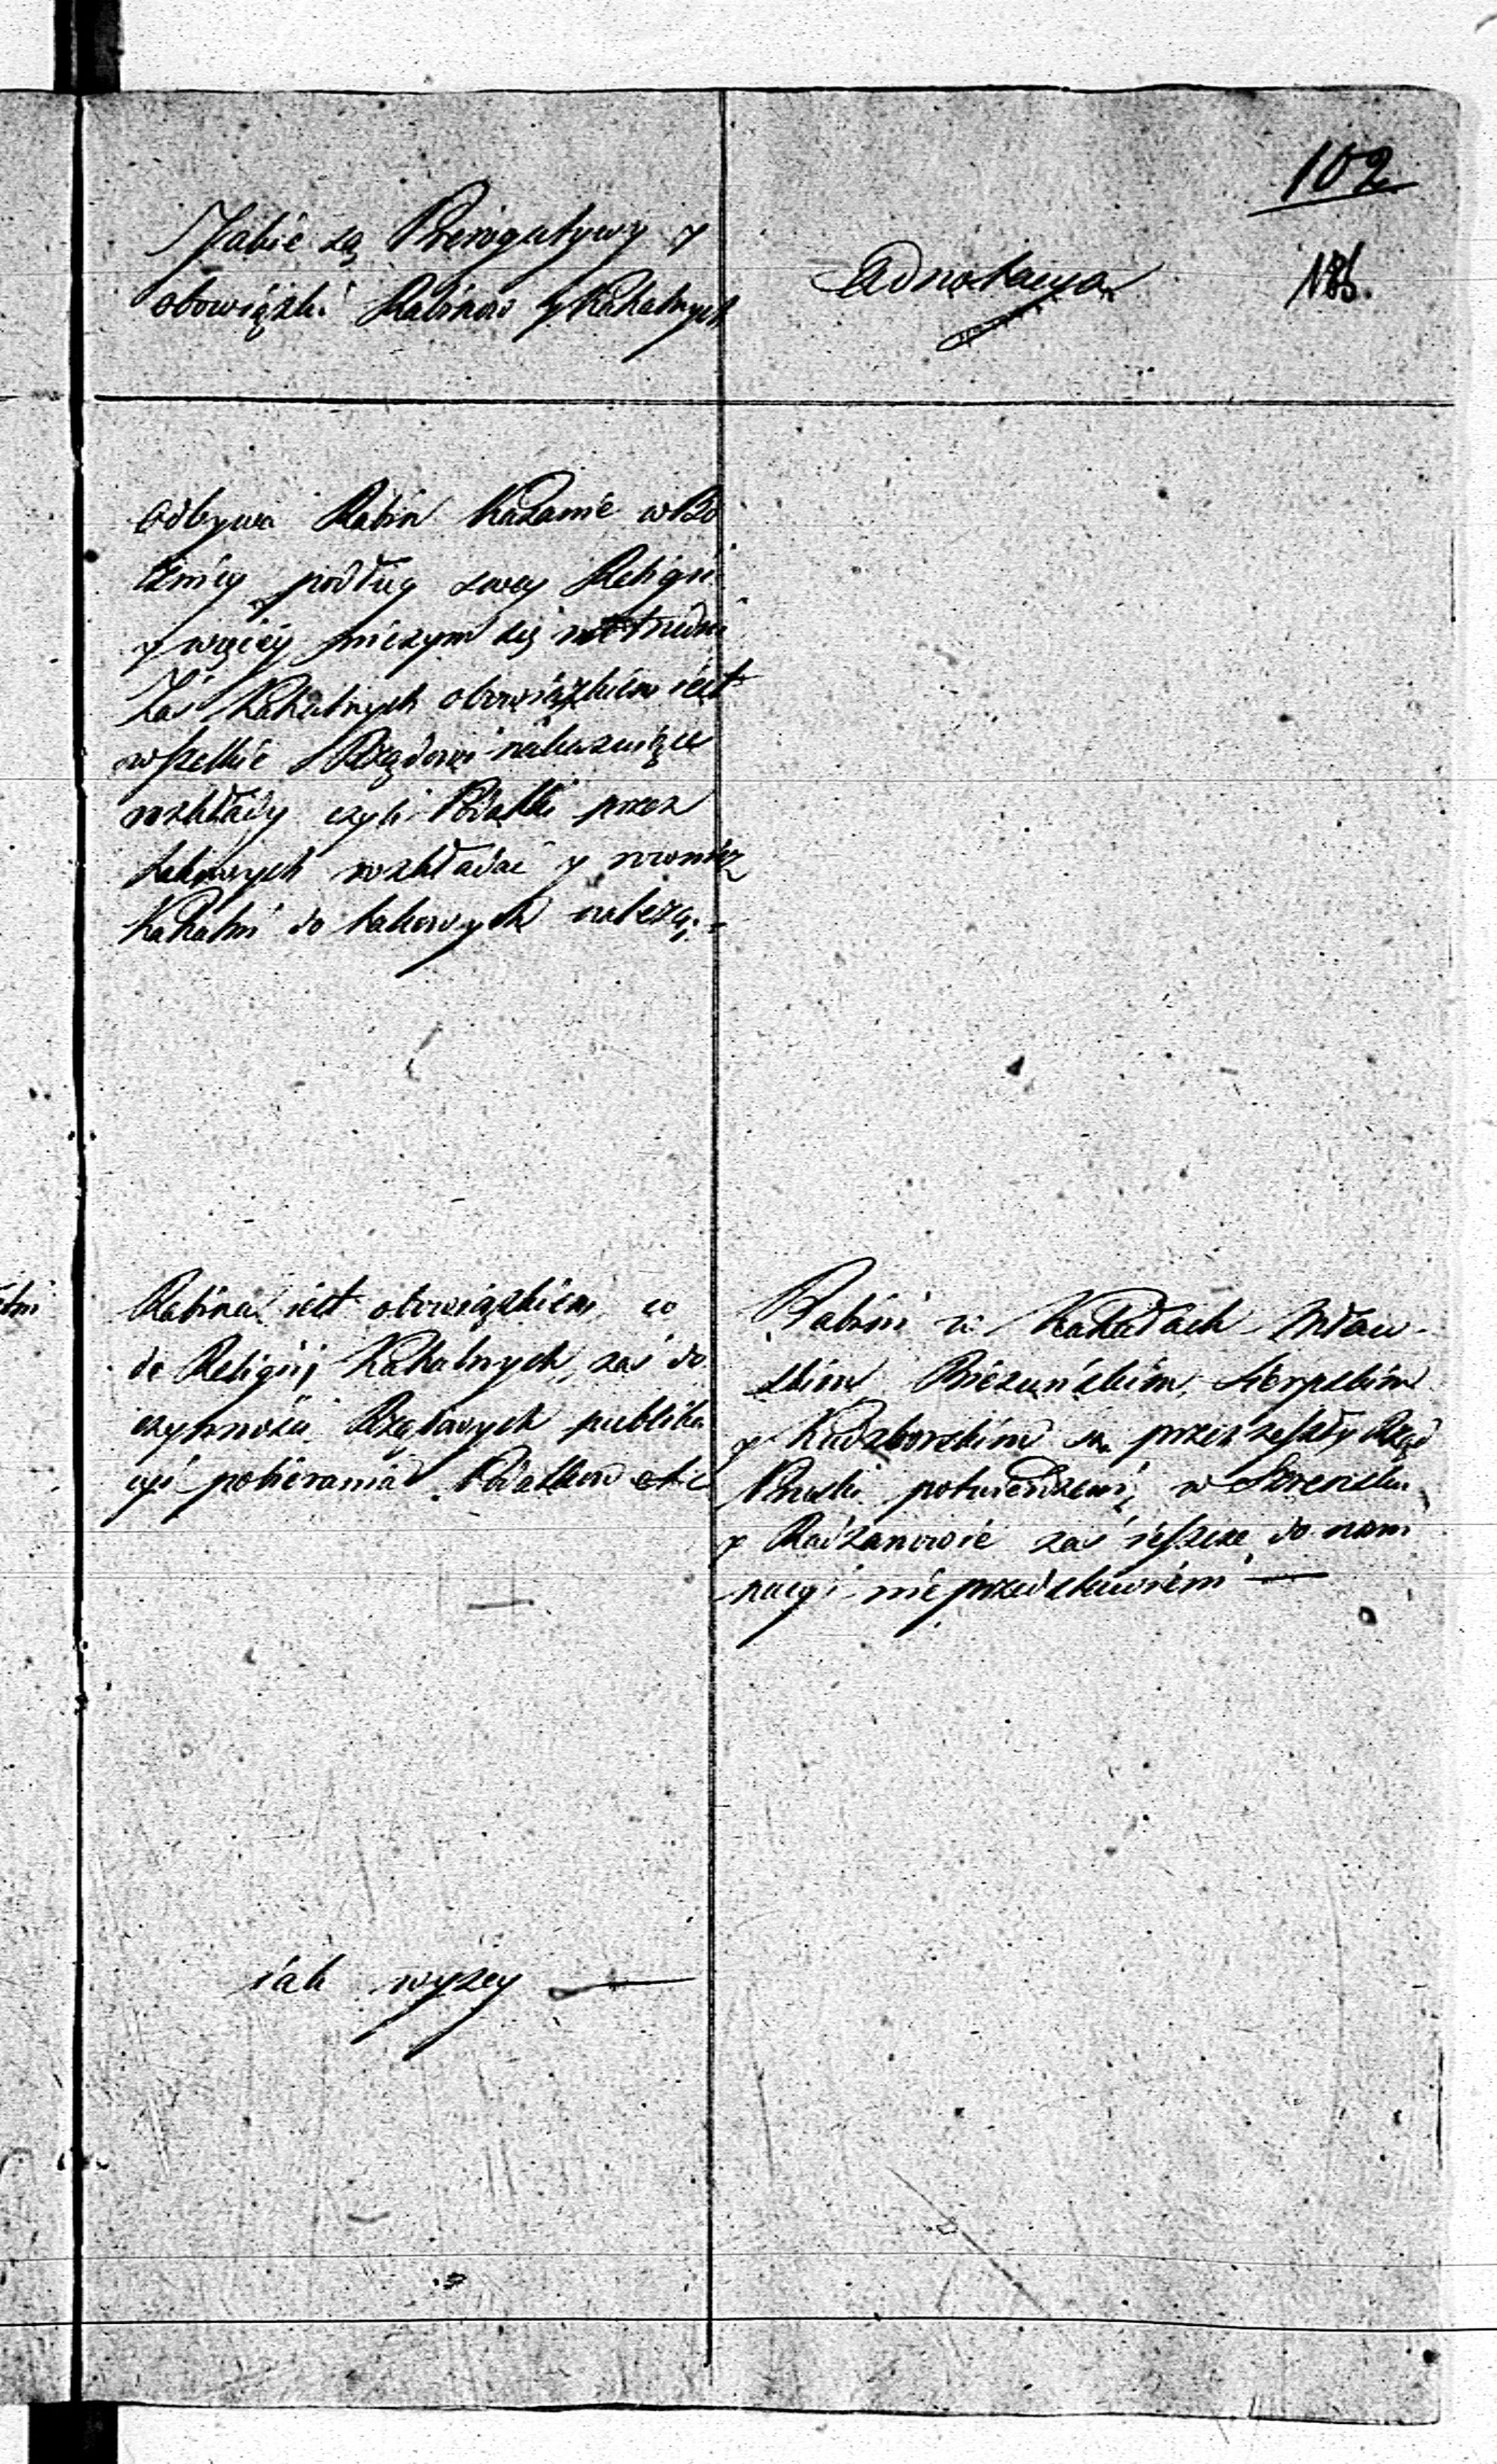 102
Jakie są Prerogatywy y
obowiązki Rabinow y Kahalnych
Adnotacya
186.
Odbywa Rabin Kazanie w Bo
żnicy podług swey Religii
y więcey niczym się nietrudni
Zaś Kahalnych obowiązkiem iest
wszelkie Rządowi nakazuiące
rozkłady czyli Podatki przez
takowych rozkładać y rownież
Kahalni do takowych należą.
Rabina iest obowiązkiem co
do Religij Kahalnych, zaś do
czynności Rządowych publika
cyi pobierania Podatkow etc
Rabini w Kahałach Mław-
skim Bieżuńskim, Sierpskim
y Kudzborskim są przez zeszły Rząd
Pruski potwierdzeni, w Szreńsku
y Radzanowie zaś ieszcze do nomi
nacyi nie przedstawieni —
iak wyżey —